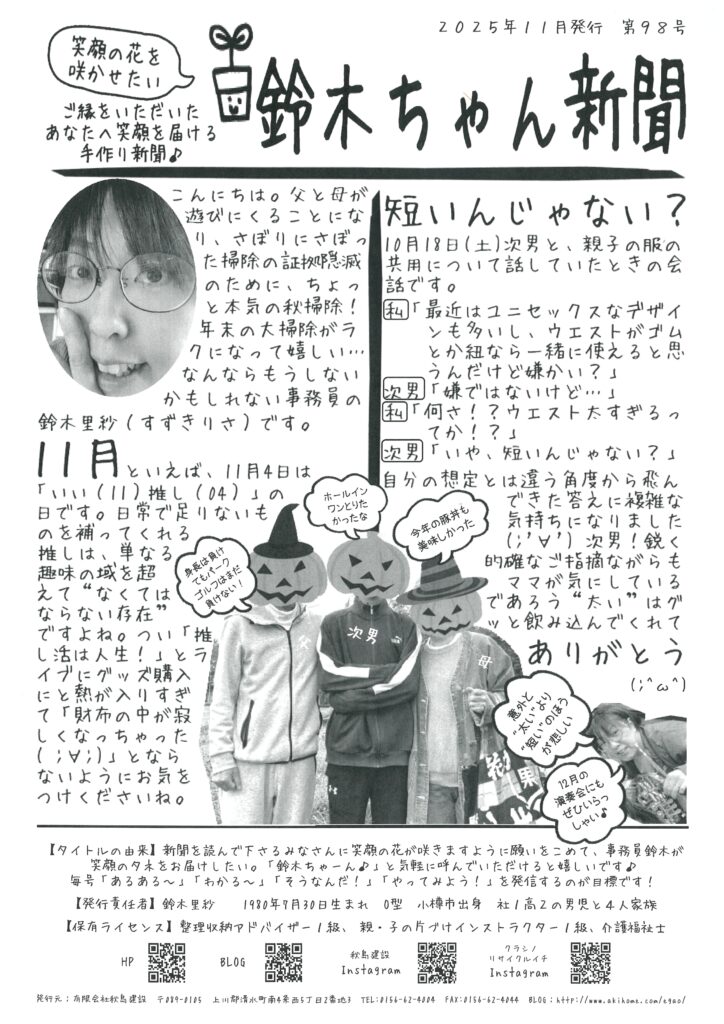 2025年11月発行 第98号
笑顔の花を
咲かせたい
鈴木ちゃん新聞
ご縁をいただいた
あなたへ笑顔を届ける
手作り新聞♪
こんにちは。父と母が
遊びにくることにな
り、さぼりにさぼっ
た掃除の証拠隠滅
のために、ちょっ
と本気の秋掃除！
年末の大掃除がラ
クになって嬉しい…
なんならもうしない
かもしれない事務員の
鈴木里紗(すずきりさ)です。
11月といえば、11月4日は
「いい(11)推し(04)」の
日です。日常で足りないも
のを補ってくれる
推しは、単なる
趣味の域を超
えて“なくては
ならない存在”
ですよね。つい「推
し活は人生！」とラ
イブにグッズ購入
にと熱が入りすぎ
て「財布の中が寂
しくなっちゃった
(;∀;)」となら
ないようにお気を
つけくださいね。
短いんじゃない？
10月18日(土)次男と、親子の服の
共用について話していたときの会
話です。
私「最近はユニセックスなデザイ
ンも多いし、ウエストがゴム
とか紐なら一緒に使えると思
うんだけど嫌かい？」
次男「嫌ではないけど…」
私「何さ！？ウエスト太すぎるっ
てか！？」
次男「いや、短いんじゃない？」
自分の想定とは違う角度から飛ん
できた答えに複雑な
気持ちになりました
(;'∀')次男！鋭く
的確なご指摘ながらも
ママが気にしている
であろう“太い”はグ
ッと飲み込んでくれて
ありがとう
(;^ω^)
身長は負け
てもパーク
ゴルフはまだ
負けない！
ホールイン
ワンとりた
かったな
今年の豚丼も
美味しかった
父
次男
母
意外と
“太い”より
“短い”のほう
が悲しい
12月の
演奏会にも
ぜひいらっ
しゃい♪
【タイトルの由来】新聞を読んで下さるみなさんに笑顔の花が咲きますように願いをこめて、事務員鈴木が
笑顔のタネをお届けしたい。「鈴木ちゃーん♪」と気軽に呼んでいただけると嬉しいです♪
毎号「あるある～」「わかる～」「そうなんだ！」「やってみよう！」を発信するのが目標です！
【発行責任者】鈴木里紗 1980年7月30日生まれ O型 小樽市出身 社1高2の男児と4人家族
【保有ライセンス】整理収納アドバイザー1級、親・子の片づけインストラクター1級、介護福祉士
HP
BLOG
秋島建設
Instagram
クラシノ
リサイクルイチ
Instagram
発行元：有限会社秋島建設 〒089-0105 上川郡清水町南4条西5丁目2番地3 TEL:0156-62-4004 FAX:0156-62-4044 BLOG：http://www.akihome.com/egao/